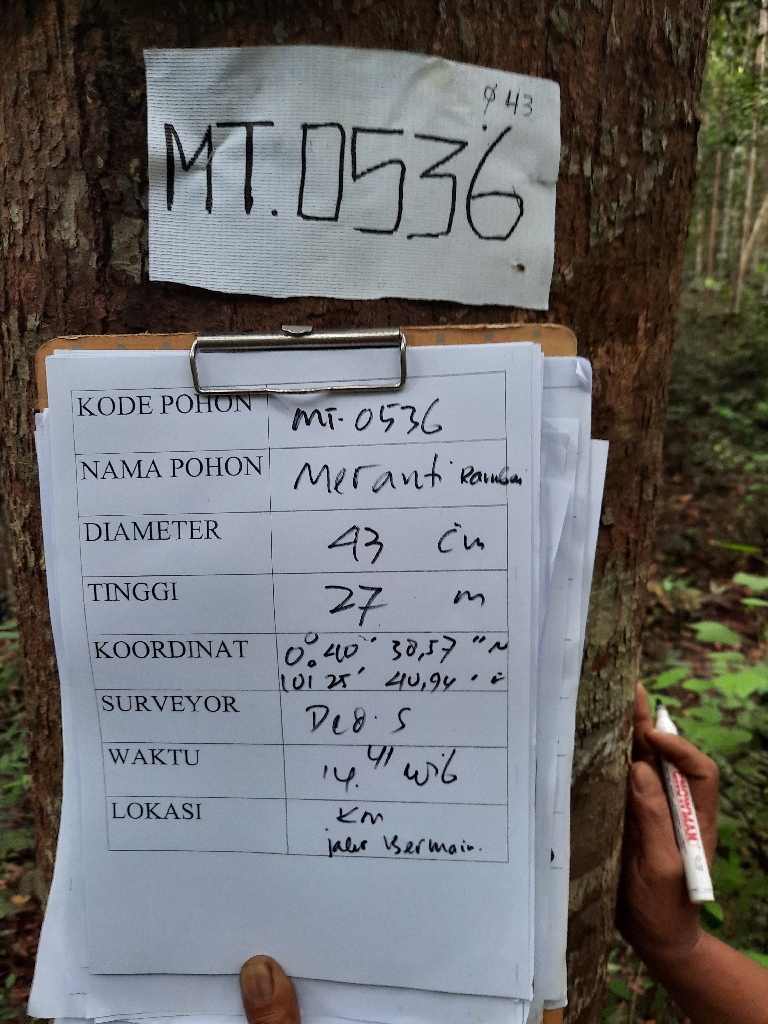 ø 43
MT.0536
KODE POHON MT-0536
NAMA POHON Meranti
DIAMETER 43 Cm
TINGGI 27 m
KOORDINAT 0° 40'' 38,57 "N
101 25' 40,94 "E
SURVEYOR Deo.S
WAKTU 14.41 Wib
LOKASI Km
jalur Bermain.
SNOWMAN